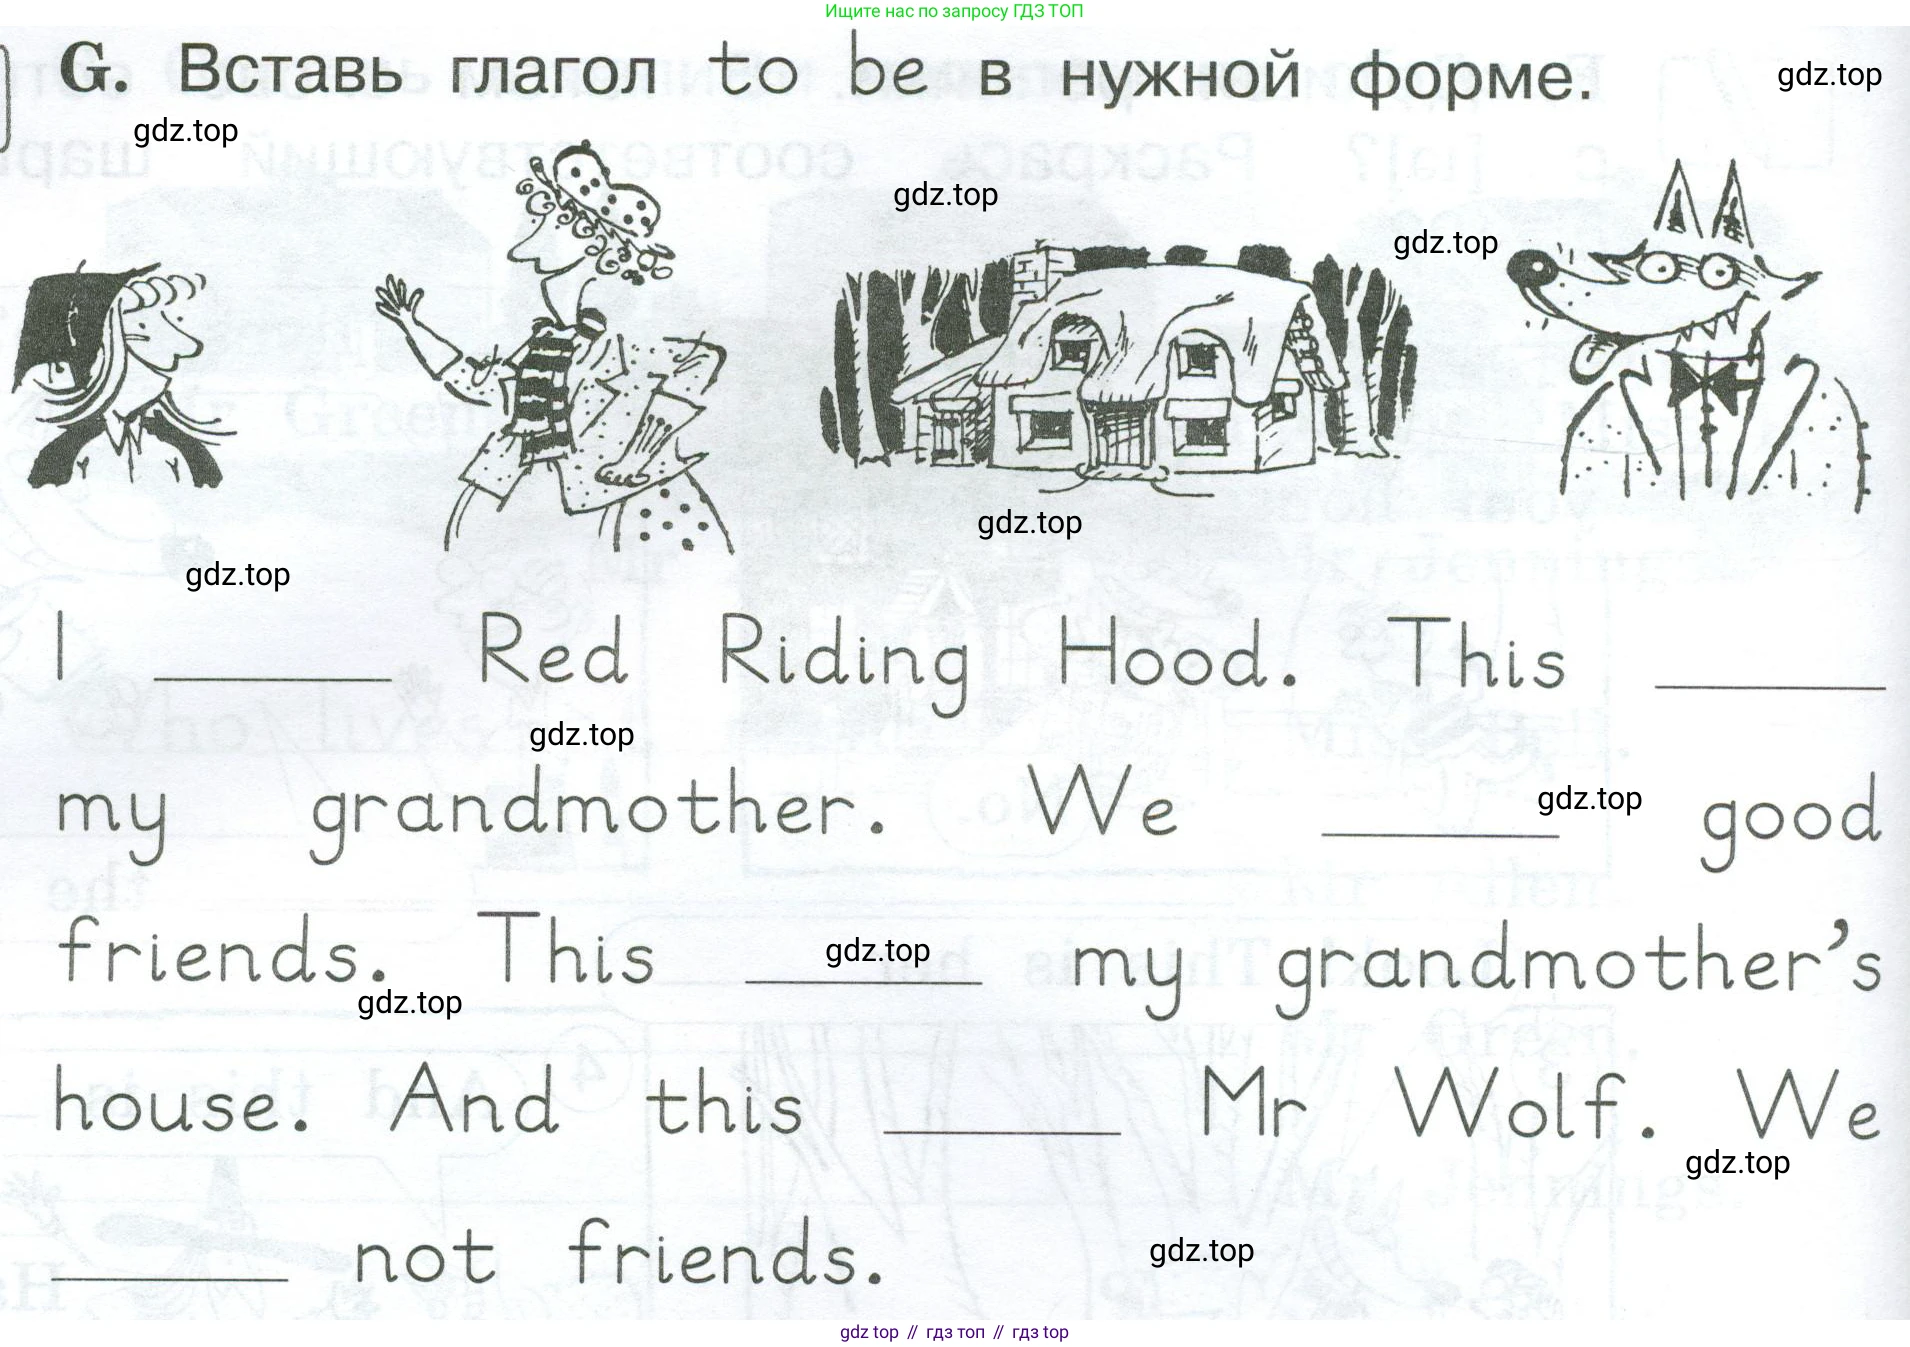 Ищите нас по запросу ГДЗ ТОП
G. Вставь глагол to be в нужной форме.
gdz.top
gdz.top
gdz.top
gdz.top
gdz.top
gdz.top
I ________ Red Riding Hood. This ________
gdz.top
my grandmother. We ________ good
gdz.top
friends. This ________ my grandmother's
gdz.top
gdz.top
house. And this ________ Mr Wolf. We
gdz.top
________ not friends.
gdz.top
gdz top // гдз топ // гдз top